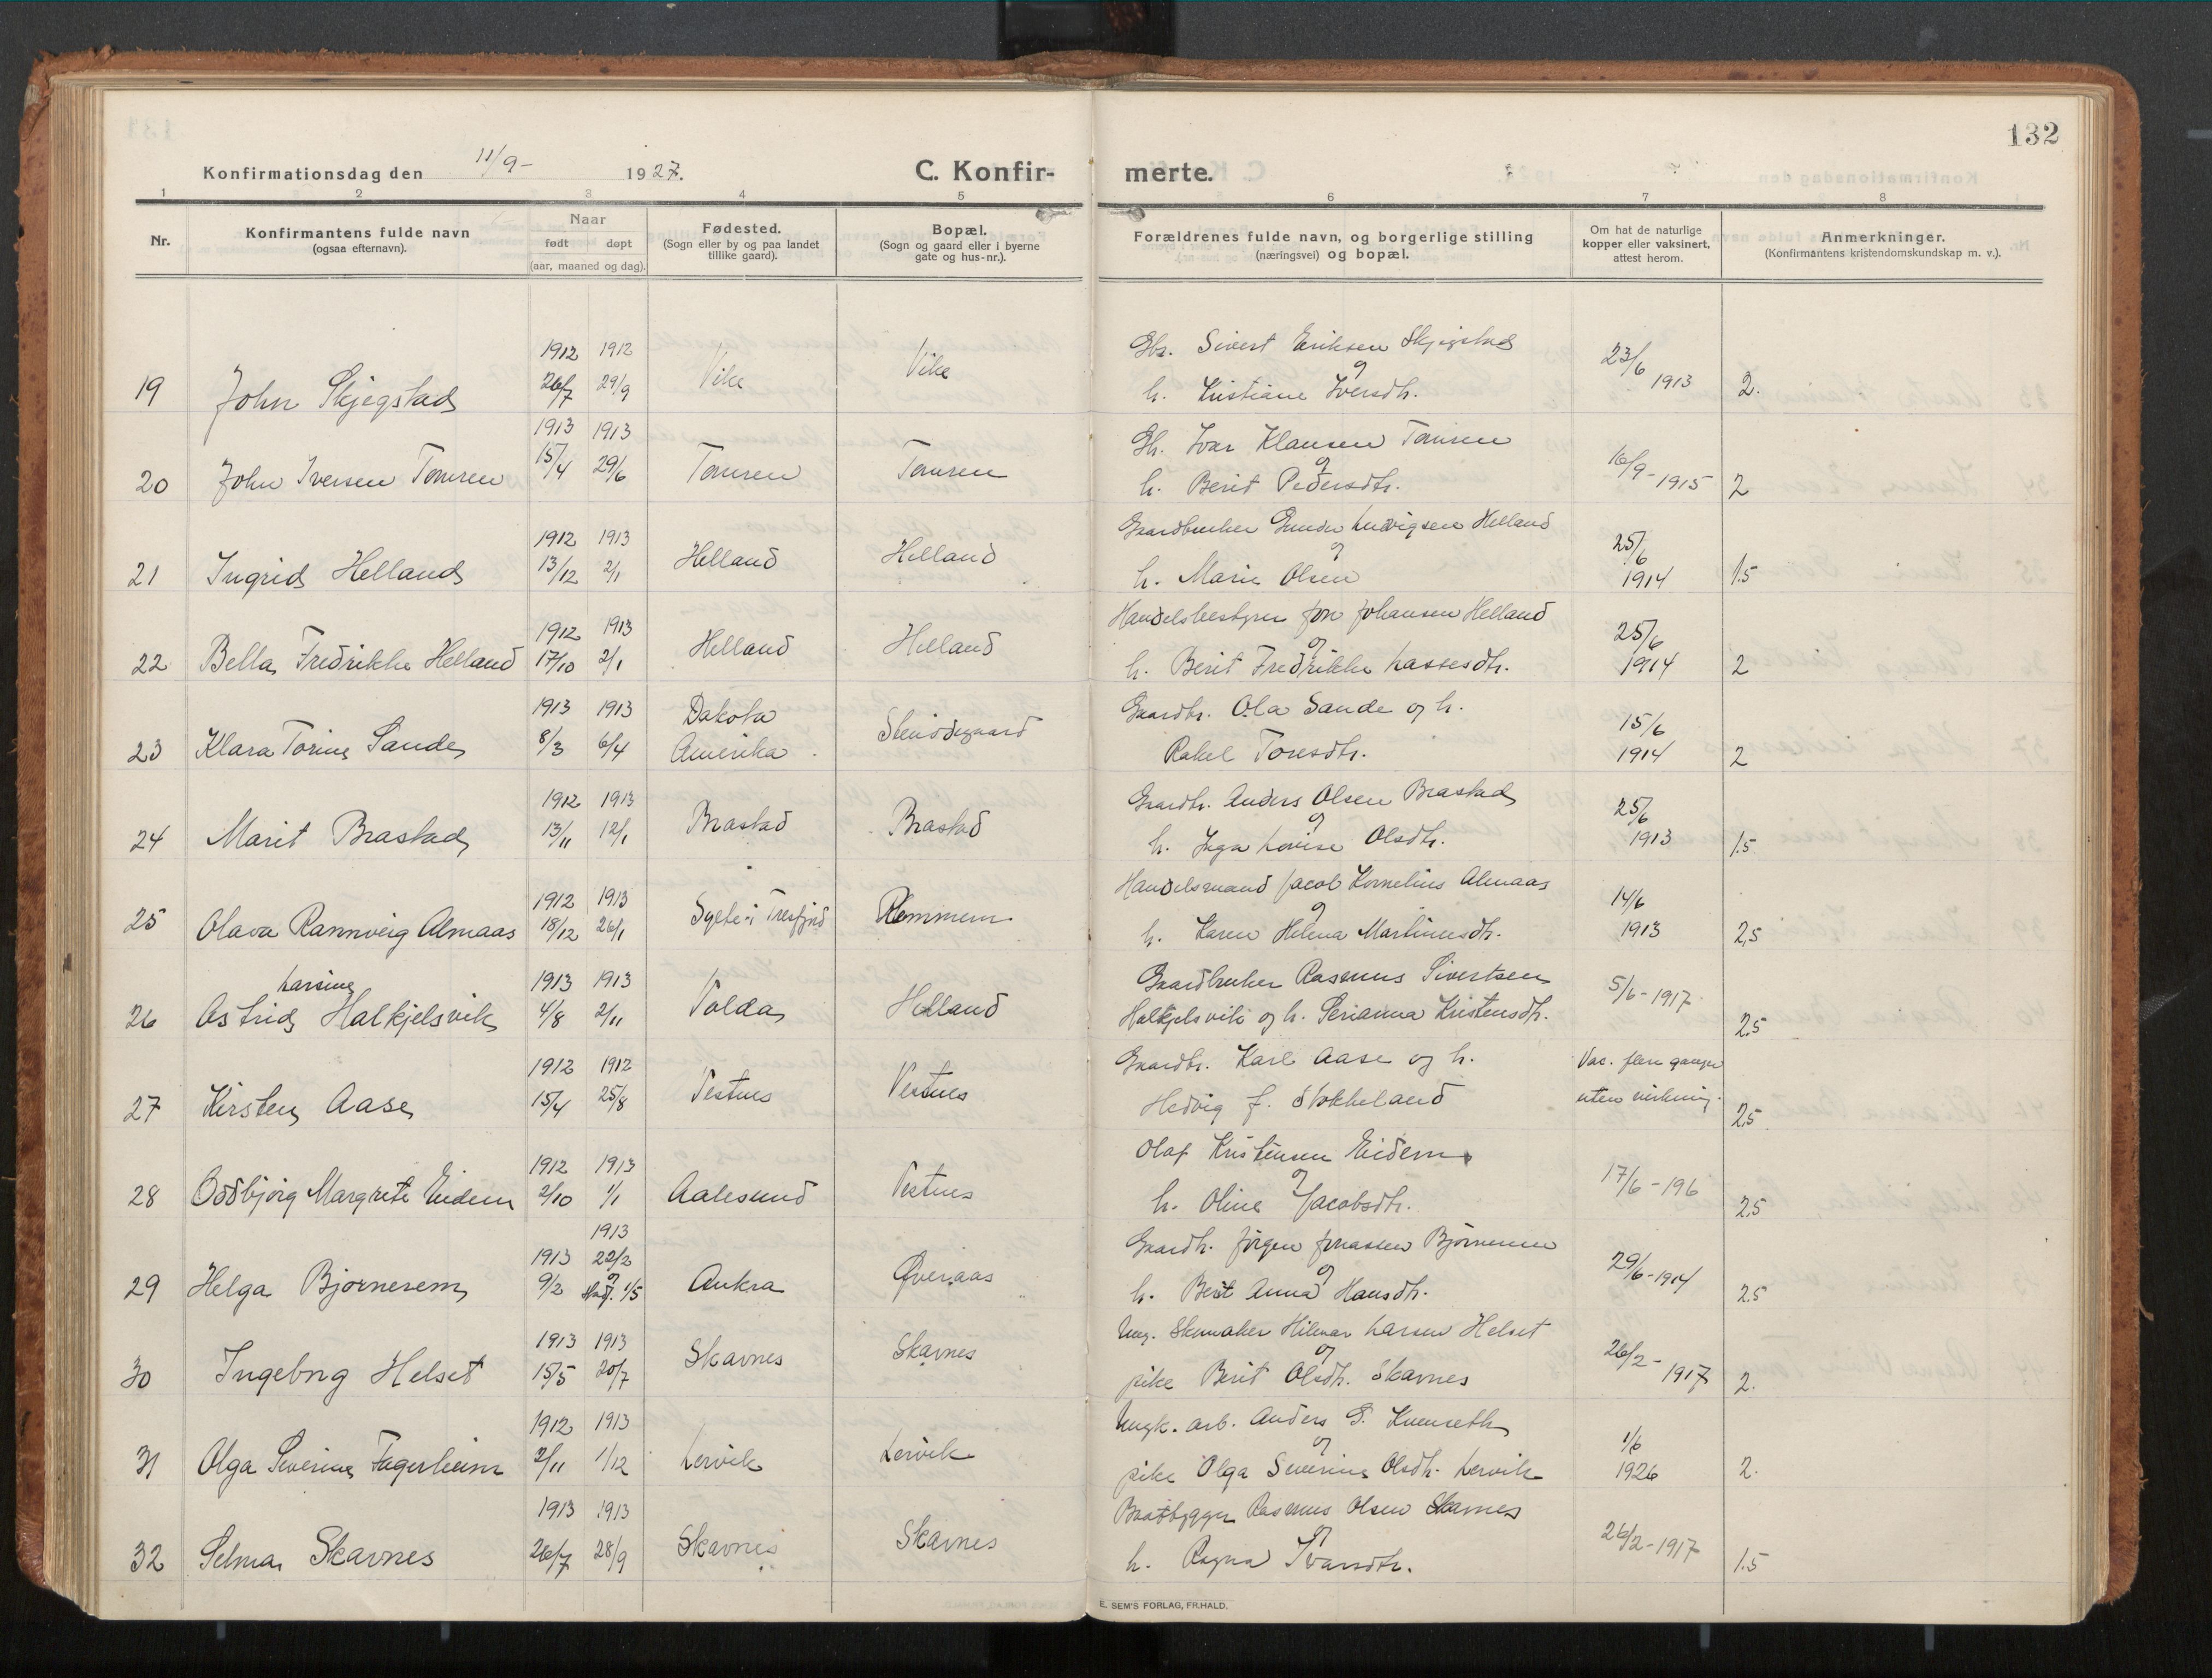 132
Konfirmationsdag den 11/9- 1927.
C. Konfirmerte.
1 2 3 4 5 6 7 8
Nr.
Konfirmantens fulde navn
(ogsaa efternavn).
Naar
født døpt
(aar, maaned og dag).
Fødested.
(Sogn eller by og paa landet
tillike gaard).
Bopæl.
(Sogn og gaard eller i byerne
gate og hus-nr.).
Forældrenes fulde navn, og borgerlige stilling
(næringsvei) og bopæl.
Om hat de naturlige
kopper eller vaksinert,
attest herom.
Anmerkninger.
(Konfirmantens kristendomskundskap m. v.).
1912 1912 Gbr. Sivert Eriksen Skjegstad
19 John Skjegstad 26/7 29/9 Vike Vike og 23/6 1913 2.
h. Kristiane Iversdtr.
1913 1913 Gbr. Ivar Klausen Tomren
20 John Iversen Tomren 15/4 29/6 Tomren Tomren og 16/9-1915 2
h. Berit Pedersdtr.
1912 1913 Gaardbruker Gunder Ludvigsen Helland
21 Ingrid Helland 13/12 2/1 Helland Helland og 25/6 1914 1.5
h. Marie Olsen
1912 1913 Handelsbestyrer Jon Johansen Helland
22 Bella Fredrikke Helland 17/10 2/1 Helland Helland og 25/6 1914 2
h. Berit Fredrikke Lassesdtr.
1913 1913 Dakota Gaardbr. Ola Sande og h.
23 Klara Torine Sande 8/3 6/4 Amerika. Rakel Toresdtr. 15/6 1914 2
1912 1913 Gaardbr. Anders Olsen Brastad
24 Marit Brastad 13/11 12/1 Brastad Brastad og 25/6 1913 1.5
h. Inga Lovise Olsdtr.
1912 1913 Handelsmand Jacob Kornelius Almaas
25 Olava Rannveig Almaas 18/12 26/1 Sylte i Tresfjord Remmem og 14/6 1913 2,5
h. Karen Helena Martinusdtr.
Larsine 1913 1913 Gaardbruker Rasmus Sivertsen
26 Astrid Halkjelsvik 4/8 2/11 Volda Helland Halkjelsvik og h. Serianna Kristensdtr. 5/6-1917. 2.5
1912 1912 Gaardbr. Karl Aase og h. Vac. flere ganger
27 Kirsten Aase 15/4 25/8 Vestnes Vestnes Hedvig f. Stokkeland uten virkning. 2.5
1912 1913 Olaf Kristensen Eidem
28 Oddbjörg Margrete Eidem 2/10 1/1 Aalesund Vestnes og 17/6-196 2.5
h. Oline Jacobsdtr.
1913
1913 22/2 Gaardbr. Jörgen Jonassen Bjørnerem
29 Helga Bjørnerem 9/2 og 1/5 Aukra Øveraas og 29/6-1914 2.5
h. Berit Anna Hansdtr.
1913 1913 Ung. Skomaker Hilmar Larsen Helset
30 Ingeborg Helset 15/5 20/7 Skavnes Skavnes og 26/2-1917 2.
pike Berit Olsdtr. Skavnes
1912 1913 Ungk. arb. Anders S. Kvemseth
31 Olga Severine Fagerheim 2/11 1/12 Lervik Lervik og 1/6 1926 2.
pike Olga Severine Olsdtr. Lervik
1913 1913 Baatbygger Rasmus Olsen Skavnes
32 Selma Skavnes 26/7 28/9 Skavnes Skavnes og 26/2-1917 1.5
h. Ragna Ivarsdtr.
E. SEM'S FORLAG, FR.HALD.